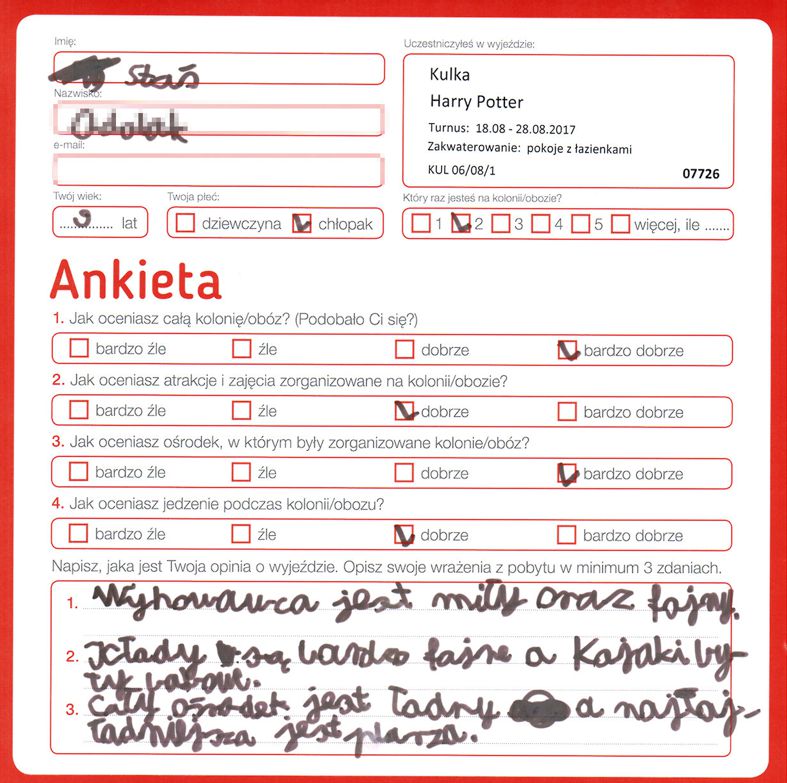 Imię:
Staś
Nazwisko:
e-mail:
Twój wiek:
9 lat
Twoja płeć:
dziewczyna chłopak
Uczestniczyłeś w wyjeździe:
Kulka
Harry Potter
Turnus: 18.08 - 28.08.2017
Zakwaterowanie: pokoje z łazienkami
KUL 06/08/1 07726
Który raz jesteś na kolonii/obozie?
1 2 3 4 5 więcej, ile .......
Ankieta
1. Jak oceniasz całą kolonię/obóz? (Podobało Ci się?)
bardzo źle źle dobrze bardzo dobrze
2. Jak oceniasz atrakcje i zajęcia zorganizowane na kolonii/obozie?
bardzo źle źle dobrze bardzo dobrze
3. Jak oceniasz ośrodek, w którym były zorganizowane kolonie/obóz?
bardzo źle źle dobrze bardzo dobrze
4. Jak oceniasz jedzenie podczas kolonii/obozu?
bardzo źle źle dobrze bardzo dobrze
Napisz, jaka jest Twoja opinia o wyjeździe. Opisz swoje wrażenia z pobytu w minimum 3 zdaniach.
1. Wyhowawca jest miły oraz fajny.
2. są bardzo fajne a Kajaki by-
3. Cały ośrodek jest ładny a najłaj-
ładniejsza jest plarza.